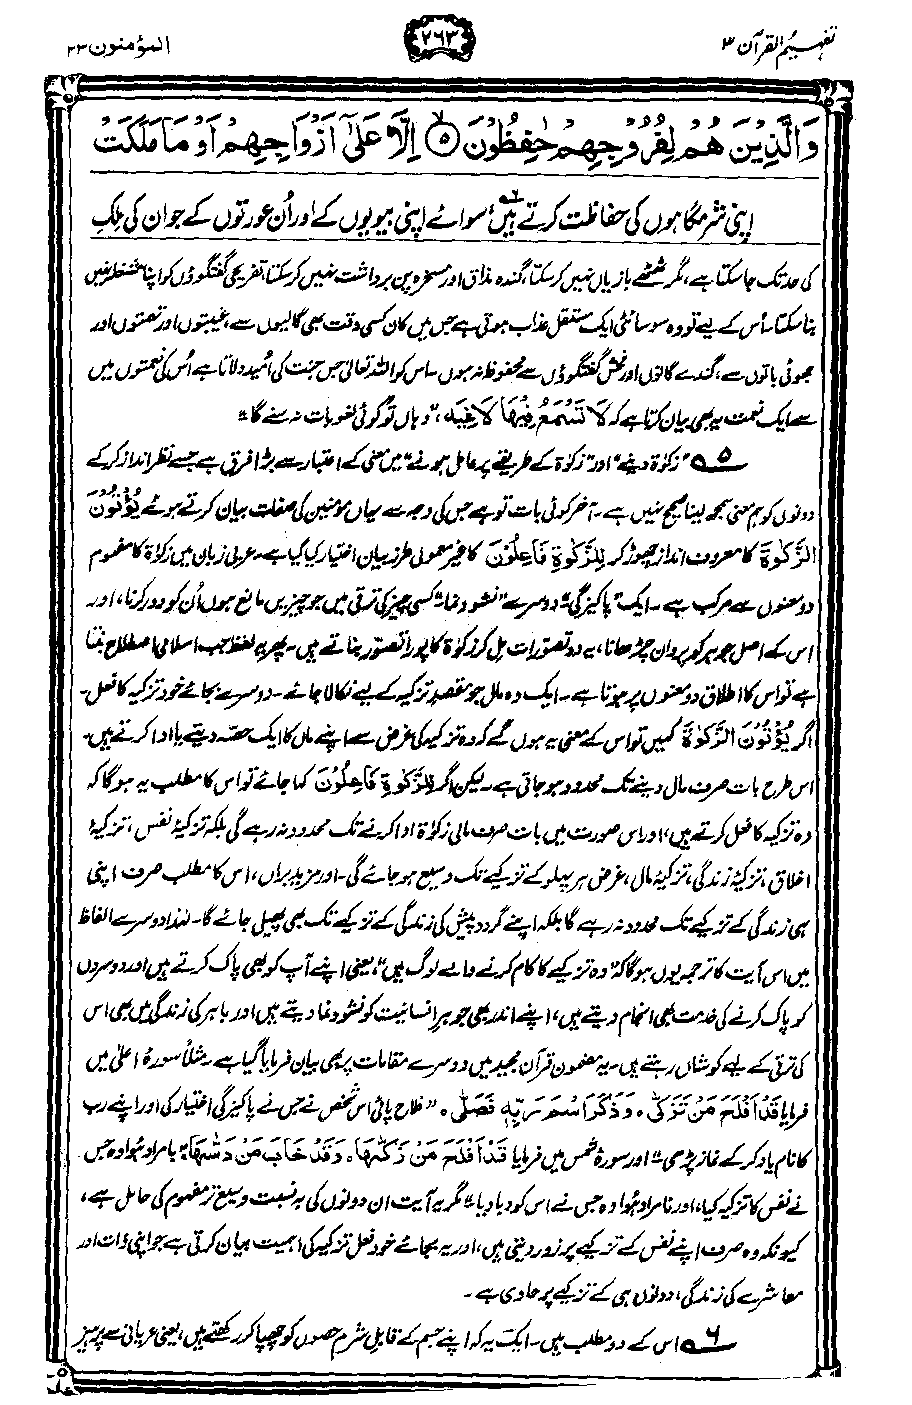 تفہیم القرآن ۳
۲۶۳
المؤمنون ۲۳
وَالَّذِيْنَ هُمْ لِفُرُوْجِهِمْ حٰفِظُوْنَ ۙ۵ اِلَّا عَلٰٓى اَزْوَاجِهِمْ اَوْ مَا مَلَكَتْ
اپنی شرمگاہوں کی حفاظت کرتے ہیں،۶ سوائے اپنی بیویوں کے اور اُن عورتوں کے جو ان کی مِلکِ
کی حد تک جا سکتا ہے، مگر ٹھٹھے بازیاں نہیں کر سکتا، گندہ مذاق اور مسخرہ پن برداشت نہیں کر سکتا، تفریحی گفتگوؤں کو اپنا مشغلہ نہیں
بنا سکتا۔ اُس کے لیے تو وہ سوسائٹی ایک مستقل عذاب ہوتی ہے جس میں کان کسی وقت بھی گالیوں سے، غیبتوں اور تہمتوں اور
جھوٹی باتوں سے، گندے گانوں اور فحش گفتگوؤں سے محفوظ نہ ہوں۔ اس کو اللہ تعالیٰ جس جنت کی اُمید دلاتا ہے اُس کی نعمتوں میں
سے ایک نعمت یہ بھی بیان کرتا ہے کہ لَا تَسْمَعُ فِيْهَا لَاغِيَه، "وہاں تو کوئی لغو بات نہ سنے گا"۔
۵ "زکوٰۃ دینے" اور "زکوٰۃ کے طریقے پر عامل ہونے" میں معنی کے اعتبار سے بڑا فرق ہے جسے نظر انداز کر کے
دونوں کو ہم معنی سمجھ لینا صحیح نہیں ہے۔ آخر کوئی بات تو ہے جس کی وجہ سے یہاں مومنین کی صفات بیان کرتے ہوئے يُؤْتُوْنَ
الزَّكٰوةَ کا معروف انداز چھوڑ کر لِلزَّكٰوةِ فَاعِلُوْنَ کا غیر معمولی طرز بیان اختیار کیا گیا ہے۔ عربی زبان میں زکوٰۃ کا مفہوم
دو معنوں سے مرکب ہے۔ ایک "پاکیزگی" دوسرے "نشو و نما"۔ کسی چیز کی ترقی میں جو چیزیں مانع ہوں اُن کو دور کرنا، اور
اس کے اصل جوہر کو پروان چڑھانا، یہ دو تصورات مل کر زکوٰۃ کا پورا تصور بناتے ہیں۔ پھر یہ لفظ جب اسلامی اصطلاح بنتا
ہے تو اس کا اطلاق دو معنوں پر ہوتا ہے۔ ایک وہ مال جو مقصدِ تزکیہ کے لیے نکالا جائے۔ دوسرے بجائے خود تزکیہ کا فعل۔
اگر يُؤْتُوْنَ الزَّكٰوةَ کہیں تو اس کے معنی یہ ہوں گے کہ وہ تزکیہ کی غرض سے اپنے مال کا ایک حصہ دیتے یا ادا کرتے ہیں۔
اس طرح بات صرف مال دینے تک محدود ہو جاتی ہے۔ لیکن اگر لِلزَّكٰوةِ فَاعِلُوْنَ کہا جائے تو اس کا مطلب یہ ہو گا کہ
وہ تزکیہ کا فعل کرتے ہیں، اور اس صورت میں بات صرف مالی زکوٰۃ ادا کرنے تک محدود نہ رہے گی بلکہ تزکیۂ نفس، تزکیۂ
اخلاق، تزکیۂ زندگی، تزکیۂ مال، غرض ہر پہلو کے تزکیے تک وسیع ہو جائے گی۔ اور مزید براں، اس کا مطلب صرف اپنی
ہی زندگی کے تزکیے تک محدود نہ رہے گا بلکہ اپنے گرد و پیش کی زندگی کے تزکیے تک بھی پھیل جائے گا۔ لہٰذا دوسرے الفاظ
میں اس آیت کا ترجمہ یوں ہو گا کہ "وہ تزکیے کا کام کرنے والے لوگ ہیں"، یعنی اپنے آپ کو بھی پاک کرتے ہیں اور دوسروں
کو پاک کرنے کی خدمت بھی انجام دیتے ہیں، اپنے اندر بھی جوہرِ انسانیت کو نشو و نما دیتے ہیں اور باہر کی زندگی میں بھی اس
کی ترقی کے لیے کوشاں رہتے ہیں۔ یہ مضمون قرآن مجید میں دوسرے مقامات پر بھی بیان فرمایا گیا ہے۔ مثلاً سورۂ اعلیٰ میں
فرمایا قَدْ اَفْلَحَ مَنْ تَزَكّٰى، وَذَكَرَ اسْمَ رَبِّهٖ فَصَلّٰى، "فلاح پائی اس شخص نے جس نے پاکیزگی اختیار کی اور اپنے رب
کا نام یاد کر کے نماز پڑھی"۔ اور سورۂ شمس میں فرمایا قَدْ اَفْلَحَ مَنْ زَكّٰىهَا، وَقَدْ خَابَ مَنْ دَسّٰىهَا، "بامراد ہوا وہ جس
نے نفس کا تزکیہ کیا، اور نامراد ہوا وہ جس نے اس کو دبا دیا"۔ مگر یہ آیت ان دونوں کی بہ نسبت وسیع تر مفہوم کی حامل ہے،
کیونکہ وہ صرف اپنے نفس کے تزکیے پر زور دیتی ہیں، اور یہ بجائے خود فعلِ تزکیہ کی اہمیت بیان کرتی ہے جو اپنی ذات اور
معاشرے کی زندگی، دونوں ہی کے تزکیے پر حاوی ہے۔
۶ اس کے دو مطلب ہیں۔ ایک یہ کہ اپنے جسم کے قابلِ شرم حصوں کو چھپا کر رکھتے ہیں، یعنی عریانی سے پرہیز